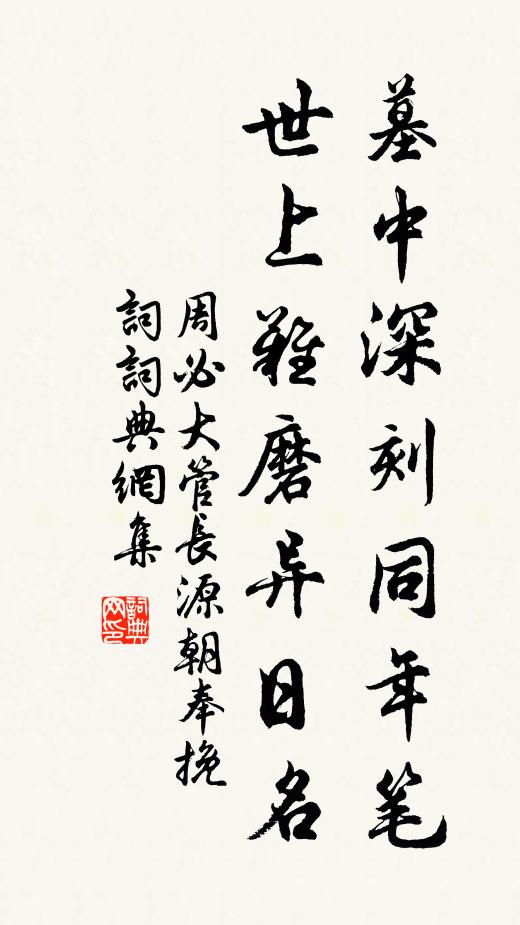 墓中深刻同年笔
世上難磨异日名
周必大管長源朝奉挽
詞詞典網集
詞典网印